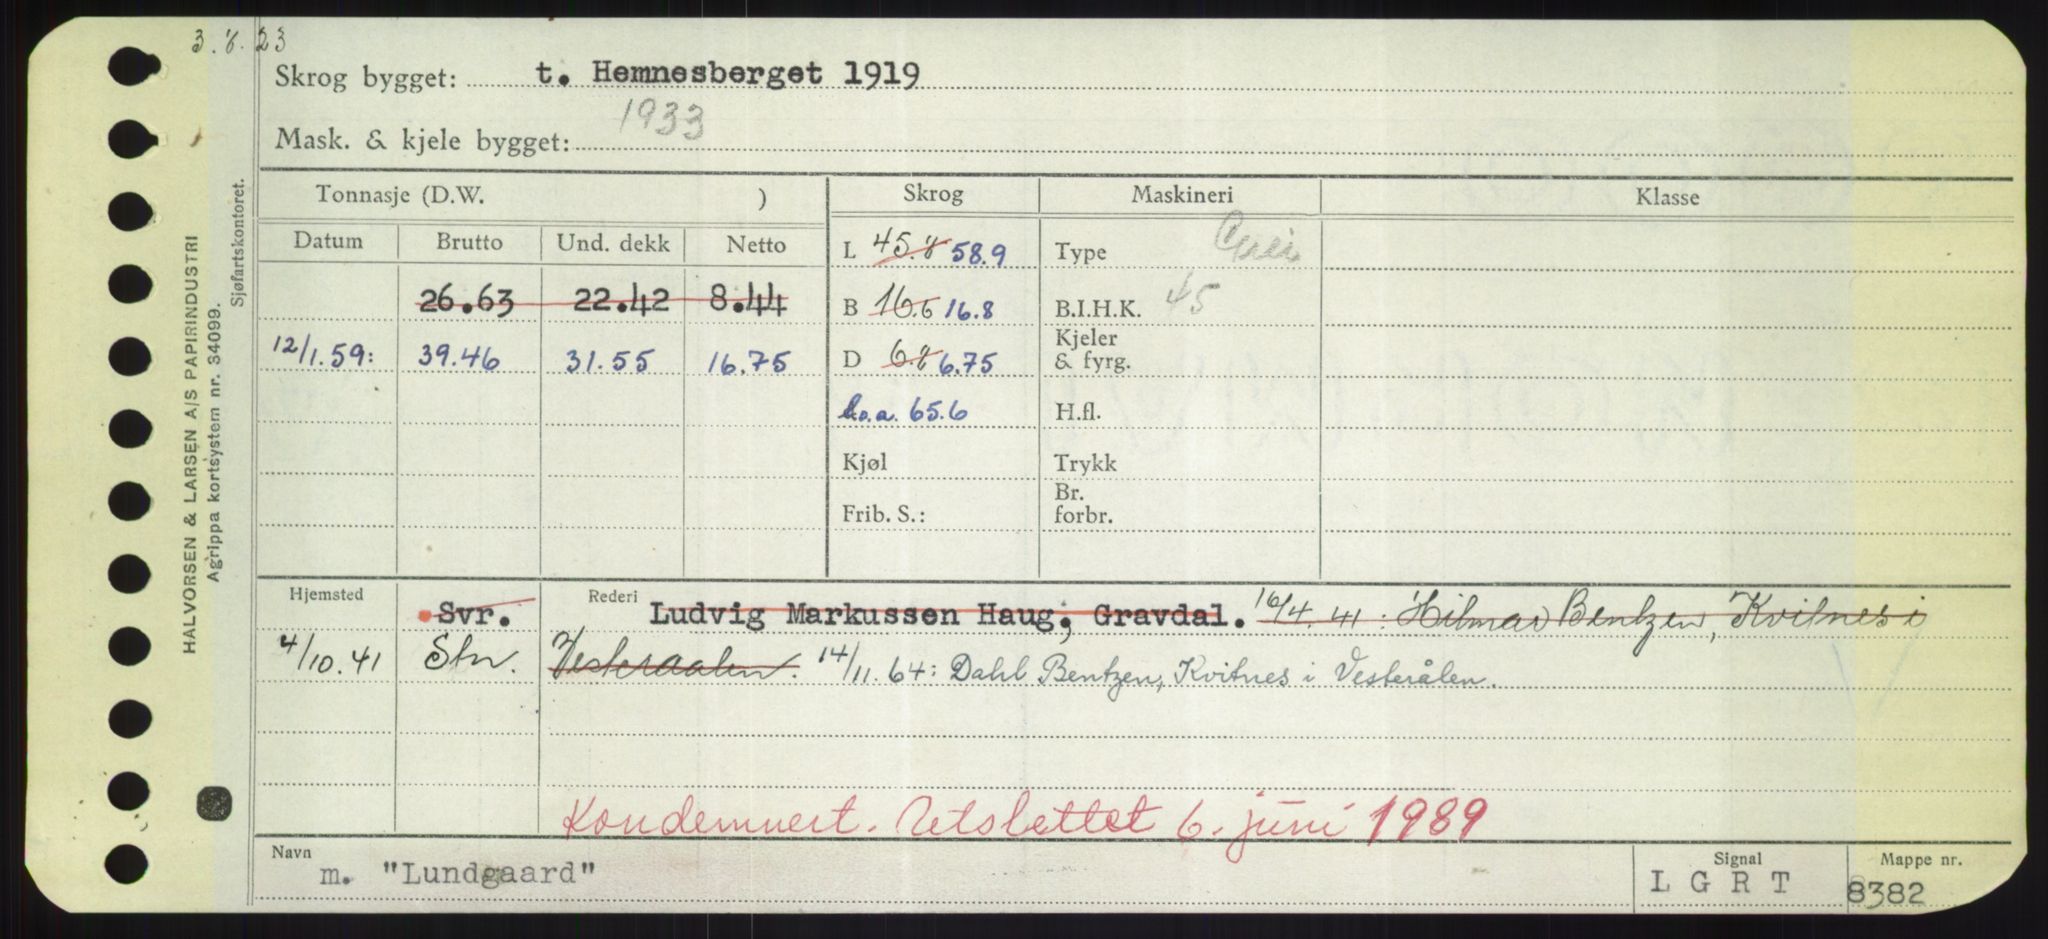 3.8.23
Skrog bygget: t. Hemnesberget 1919
Mask. & kjele bygget: 1933
HALVORSEN & LARSEN A/S PAPIRINDUSTRI
Agrippa kortsystem nr. 34099.
Sjøfartskontoret.
Tonnasje (D.W. ) Skrog Maskineri Klasse
Datum Brutto Und. dekk Netto
L 45.8 58.9 Type
26.63 22.42 8.44 B 16.6 16.8 B.I.H.K. 45
12/1.59: 39.46 31.55 16.75 D 6.8 6.75 Kjeler & fyrg.
L.o.a. 65.6 H.fl.
Kjøl Trykk
Frib. S.: Br. forbr.
Hjemsted Svr. Rederi Ludvig Markussen Haug, Gravdal. 16/4.41: Hilmar Bentzen, Kvitnes i
4/10.41 Stn. Vesteraalen. 14/11.64: Dahl Bentzen, Kvitnes i Vesterålen.
Kondemnert. Utslettet 6. juni 1989
Navn Signal Mappe nr.
m. "Lundgaard" L G R T 8382